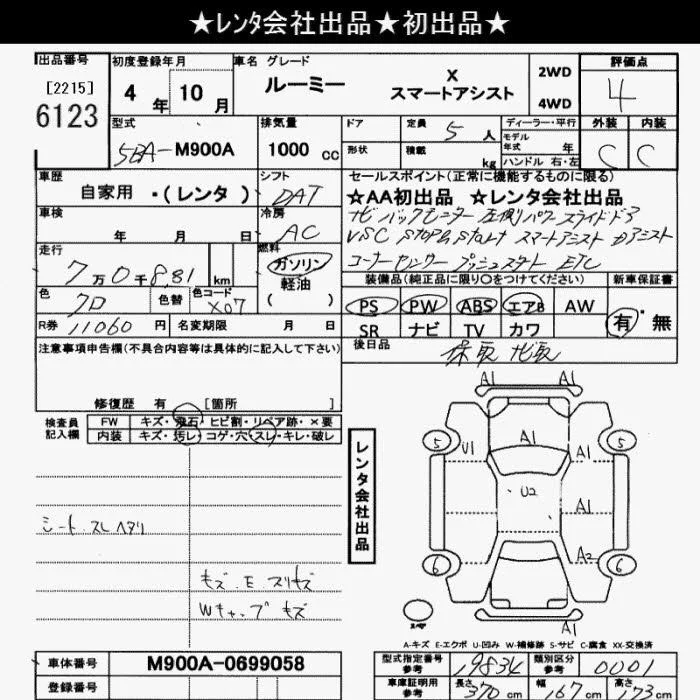 ★レンタ会社出品★初出品★
出品番号
[2215]
6123
初度登録年月
4 年 10 月
車名 グレード
ルーミー X スマートアシスト
2WD
4WD
評価点
4
外装 内装
C C
型式
5BA-M900A
排気量
1000 cc
ドア
形状
定員 5 人
積載 kg
ディーラー・平行
モデル年式 年
ハンドル 右・左
車歴
自家用 ・(レンタ)
シフト
DAT
車検
年 月 日
冷房
AC
走行
7万0千881 km
燃料
ガソリン
軽油
( )
色
クロ
色替
色コード
X07
R券 11060 円
名変期限 月 日
セールスポイント(正常に機能するものに限る)
★AA初出品 ★レンタ会社出品
ナビ バックモニター 左側パワースライドドア
VSC スマートアシスト
コーナーセンサー プッシュスタート ETC
装備品(純正品に限り○をつけてください)
新車保証書
PS PW ABS エアB AW
SR ナビ TV カワ
有・無
後日品
保取 ナビ取
注意事項申告欄(不具合内容等は具体的に記入して下さい)
修復歴 有 [箇所 ]
検査員記入欄
FW キズ・飛石・ヒビ割・リペア跡・×要
内装 キズ・汚レ・コゲ・穴・スレ・キレ・破レ
シート スレ ヘタリ
キズ E スリキズ
Wキャップキズ
レンタ会社出品
A1 A1
5 U1 A1 5
U2 A1
A2
6 6
A1
スペア
A-キズ E-エクボ U-凹み W-補修跡 S-サビ C-腐食 XX-交換済
車体番号 M900A-0699058
登録番号
型式指定番号 参考 19834
類別区分 参考 0001
車庫証明用 参考
長さ 370 cm 幅 167 cm 高さ 173 cm